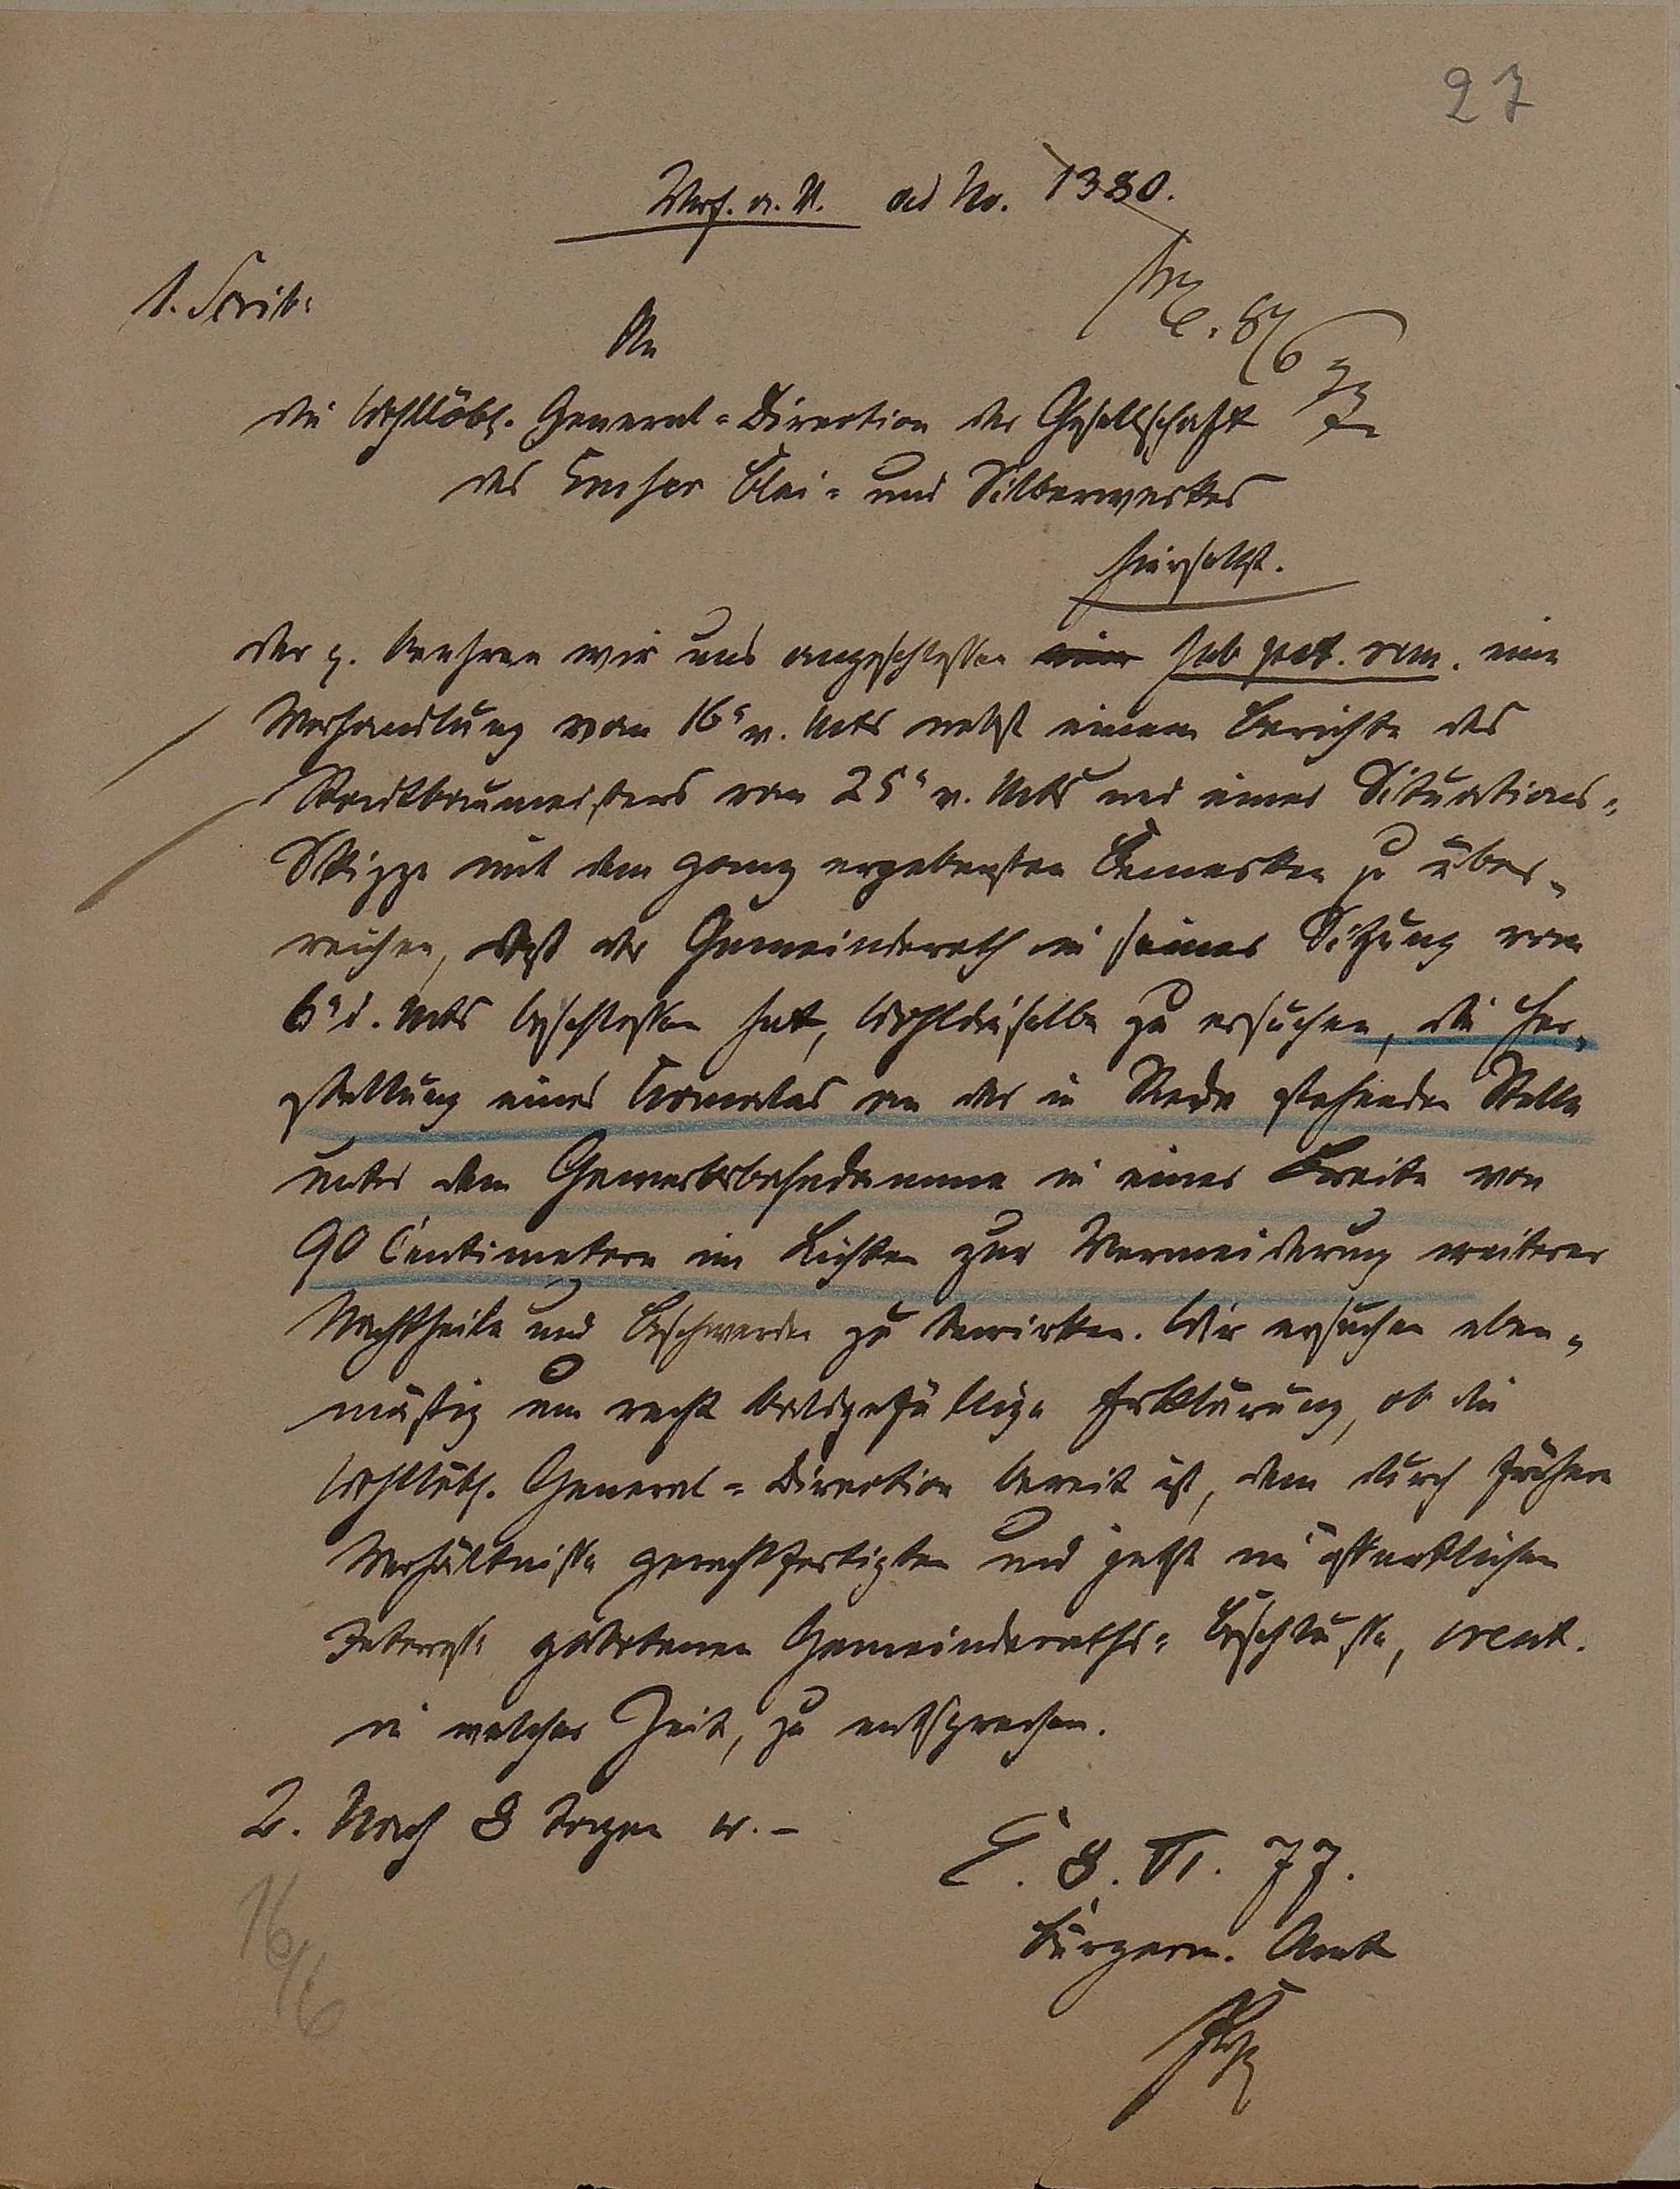 27
Verf. a. U. ad No. 1380.
1. Scrib:
E. 8/6 77
An
die Wohllöbl. General-Direction der Gesellschaft
des Emser Blei- und Silberwerkes
hierselbst.
Der p. beehren wir uns angeschlossen sub pet. rem. eine
Verhandlung vom 16n v. Mts nebst einem Berichte des
Stadtbaumeisters vom 25n v. Mts und einer Situations-
Skizze mit dem ganz ergebensten Bemerken zu über-
reichen, daß der Gemeinderath in seiner Sitzung vom
6n d. Mts beschlossen hat, Wohldieselbe zu ersuchen, die Her-
stellung eines Canales an der in Rede stehenden Stelle
unter dem Gewerksbahndamme in einer Breite von
90 Centimetern im Lichten zur Vermeidung weiterer
Nachtheile und Beschwerden zu bewirken. Wir ersuchen eben-
mäßig um recht baldgefällige Erklärung, ob die
Wohllöbl. General-Direction bereit ist, dem durch frühere
Verhältnisse gerechtfertigten und jetzt im öffentlichen
Interesse gebotenen Gemeinderaths-Beschlusse, event.
in welcher Zeit, zu entsprechen.
2. Nach 8 Tagen w.-
E. 8. VI. 77.
Bürgerm. Amt
16/6